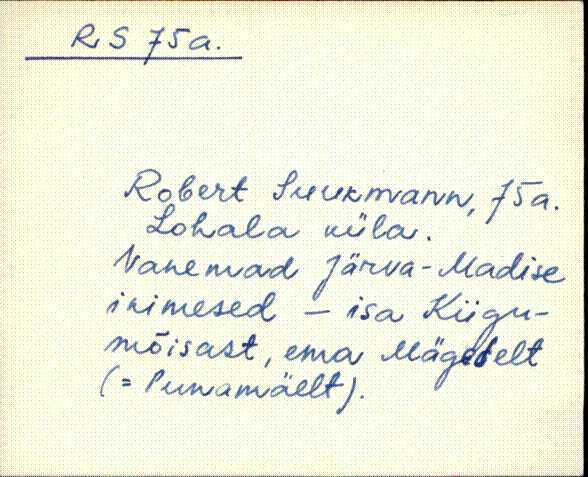 R S 75a.
Robert Suurmann, 75a.
Lohala küla.
Vanemad Järva-Madise
inimesed – isa Kiigu-
mõisast, ema Mägedelt
(= Punamäelt).